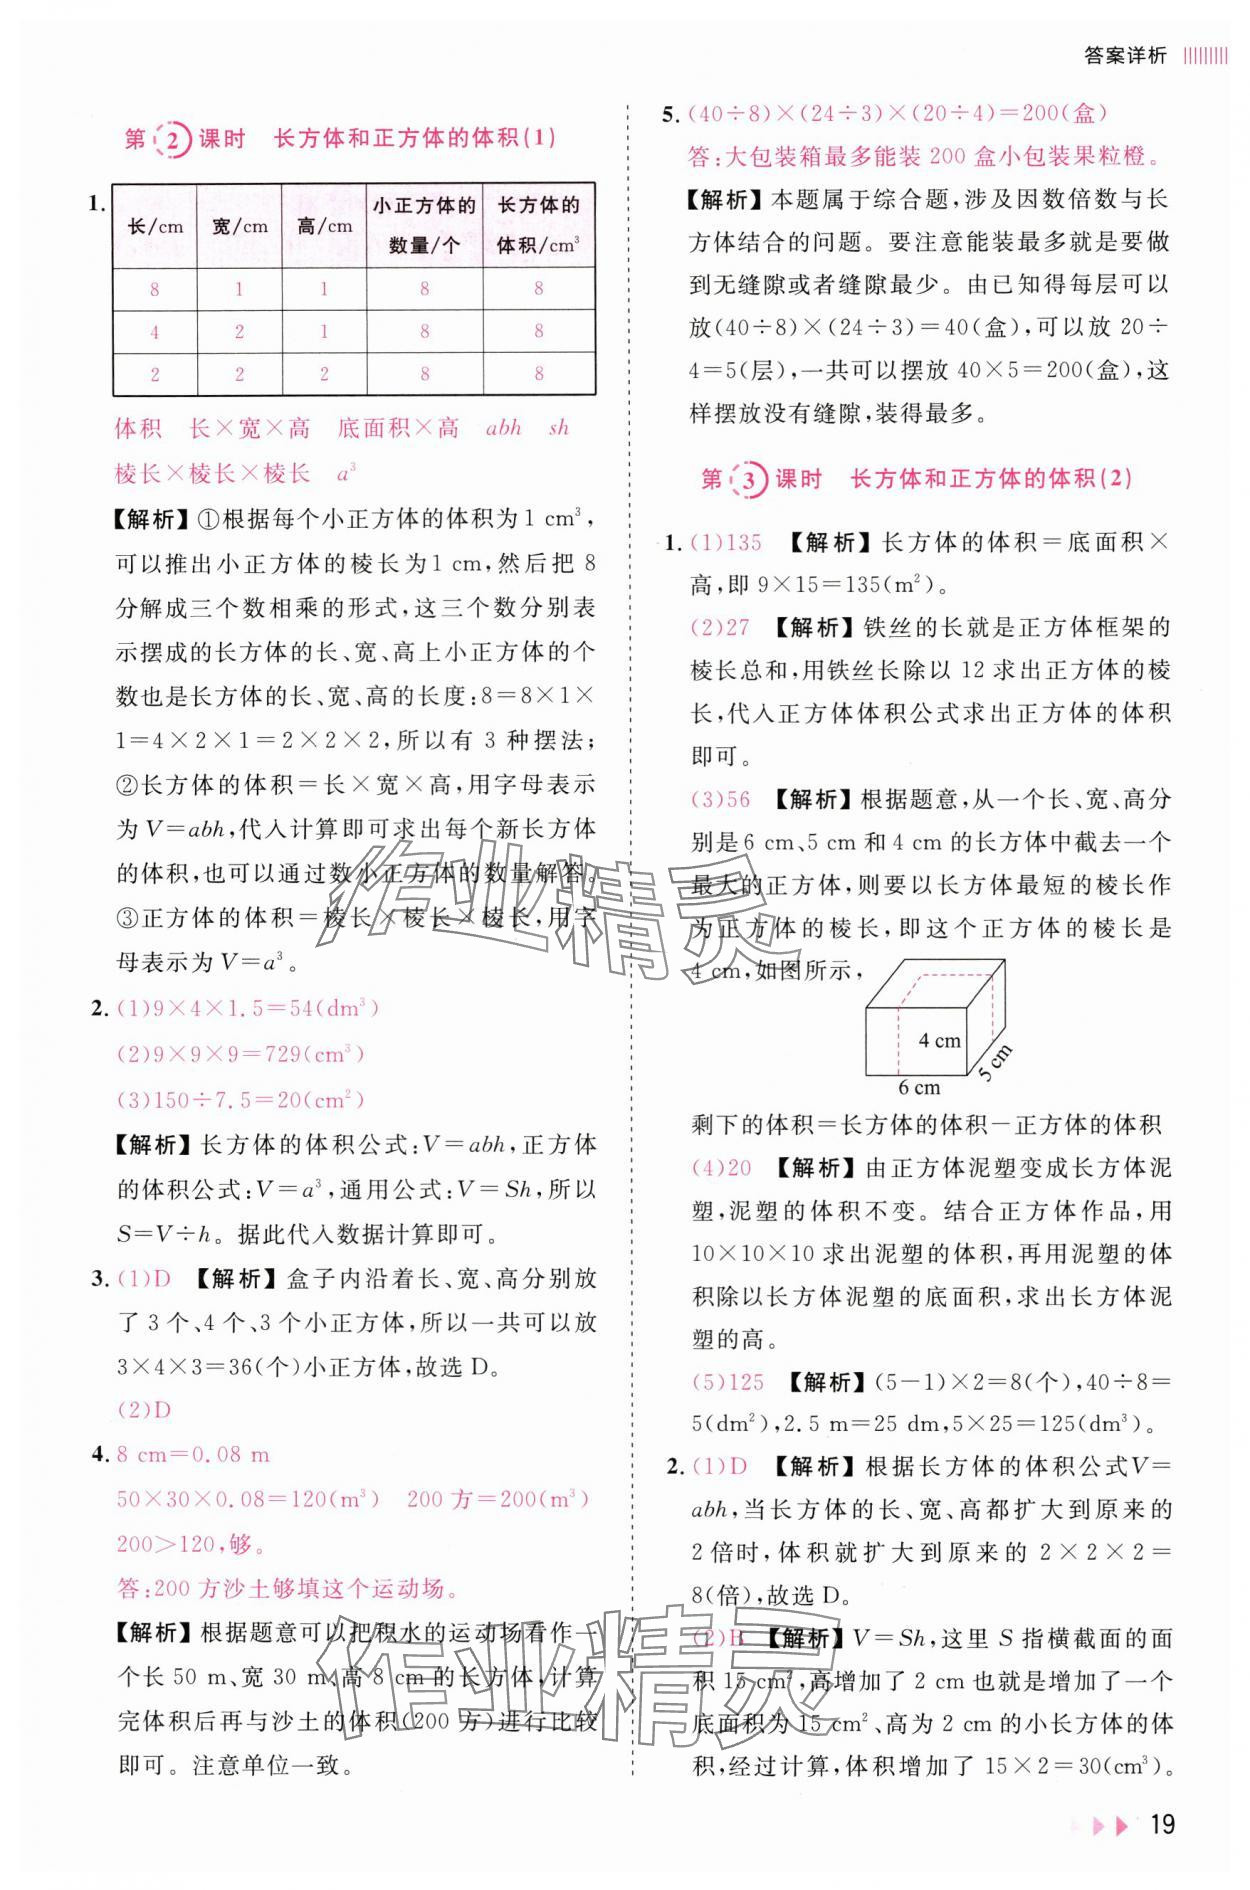 答案详析
第2课时 长方体和正方体的体积(1)
1.
长/cm 宽/cm 高/cm 小正方体的数量/个 长方体的体积/cm³
8 1 1 8 8
4 2 1 8 8
2 2 2 8 8
体积 长×宽×高 底面积×高 abh sh
棱长×棱长×棱长 a³
【解析】①根据每个小正方体的体积为1 cm³,
可以推出小正方体的棱长为1 cm,然后把 8
分解成三个数相乘的形式,这三个数分别表
示摆成的长方体的长、宽、高上小正方体的个
数也是长方体的长、宽、高的长度:8=8×1×
1=4×2×1=2×2×2,所以有 3 种摆法;
②长方体的体积=长×宽×高,用字母表示
为V=abh,代入计算即可求出每个新长方体
的体积,也可以通过数小正方体的数量解答。
③正方体的体积=棱长×棱长×棱长,用字
母表示为V=a³。
2. (1)9×4×1.5=54(dm³)
(2)9×9×9=729(cm³)
(3)150÷7.5=20(cm²)
【解析】长方体的体积公式:V=abh,正方体
的体积公式:V=a³,通用公式:V=Sh,所以
S=V÷h。据此代入数据计算即可。
3. (1)D 【解析】盒子内沿着长、宽、高分别放
了3个、4个、3个小正方体,所以一共可以放
3×4×3=36(个)小正方体,故选D。
(2)D
4. 8 cm=0.08 m
50×30×0.08=120(m³) 200方=200(m³)
200>120,够。
答:200方沙土够填这个运动场。
【解析】根据题意可以把积水的运动场看作一
个长 50 m、宽 30 m、高 8 cm 的长方体,计算
完体积后再与沙土的体积(200方)进行比较
即可。注意单位一致。
5. (40÷8)×(24÷3)×(20÷4)=200(盒)
答:大包装箱最多能装 200 盒小包装果粒橙。
【解析】本题属于综合题,涉及因数倍数与长
方体结合的问题。要注意能装最多就是要做
到无缝隙或者缝隙最少。由已知得每层可以
放(40÷8)×(24÷3)=40(盒),可以放 20÷
4=5(层),一共可以摆放 40×5=200(盒),这
样摆放没有缝隙,装得最多。
第3课时 长方体和正方体的体积(2)
1. (1)135 【解析】长方体的体积=底面积×
高,即 9×15=135(m²)。
(2)27 【解析】铁丝的长就是正方体框架的
棱长总和,用铁丝长除以 12 求出正方体的棱
长,代入正方体体积公式求出正方体的体积
即可。
(3)56 【解析】根据题意,从一个长、宽、高分
别是6 cm、5 cm 和 4 cm 的长方体中截去一个
最大的正方体,则要以长方体最短的棱长作
为正方体的棱长,即这个正方体的棱长是
4 cm,如图所示,
4 cm
5 cm
6 cm
剩下的体积=长方体的体积-正方体的体积
(4)20 【解析】由正方体泥塑变成长方体泥
塑,泥塑的体积不变。结合正方体作品,用
10×10×10 求出泥塑的体积,再用泥塑的体
积除以长方体泥塑的底面积,求出长方体泥
塑的高。
(5)125 【解析】(5-1)×2=8(个),40÷8=
5(dm²),2.5 m=25 dm,5×25=125(dm³)。
2. (1)D 【解析】根据长方体的体积公式V=
abh,当长方体的长、宽、高都扩大到原来的
2倍时,体积就扩大到原来的 2×2×2=
8(倍),故选D。
(2)B 【解析】V=Sh,这里 S 指横截面的面
积15 cm²,高增加了 2 cm 也就是增加了一个
底面积为 15 cm²、高为 2 cm 的小长方体的体
积,经过计算,体积增加了 15×2=30(cm³)。
19
作业精灵
作业精灵